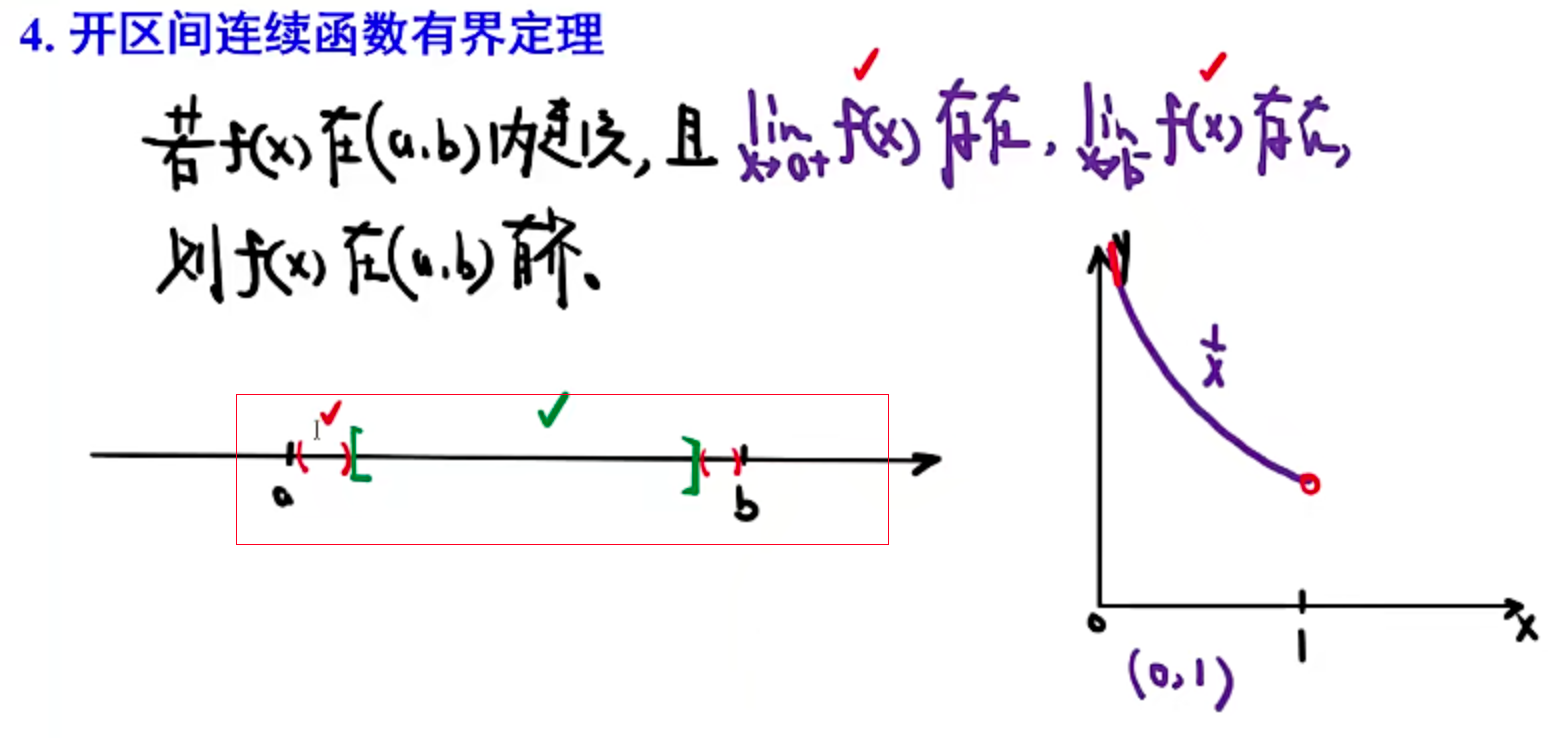 4. 开区间连续函数有界定理
若f(x)在(a,b)内连续,且 lim x→a+ f(x) 存在, lim x→b- f(x) 存在,
则f(x)在(a,b)有界。
y
1/x
a
b
0
1
x
(0,1)